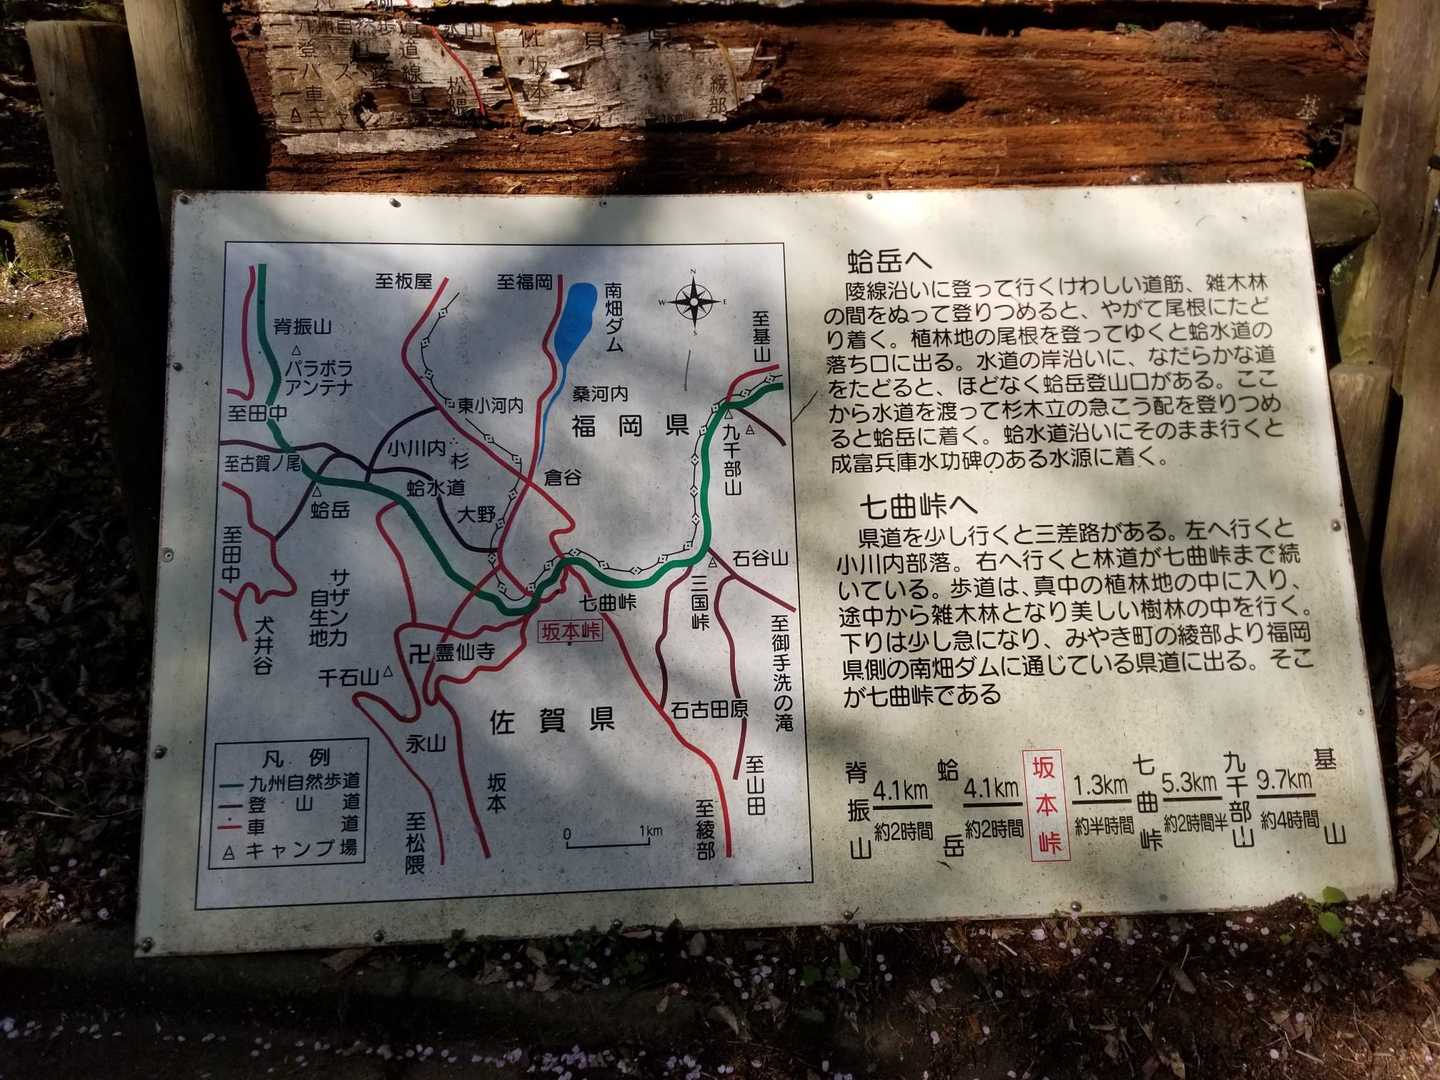 九州自然歩道
登
バス路線
車
△キャン
永山
松隈
佐賀県
坂本
綾部
至板屋
至福岡
南畑ダム
N
W
E
S
至基山
脊振山
△
パラボラ
アンテナ
至田中
東小河内
桑河内
福岡県
九千部山
小川内
杉
至古賀ノ尾
倉谷
蛤水道
大野
蛤岳
至田中
石谷山
サザンカ
自生地
三国峠
七曲峠
坂本峠
犬井谷
卍霊仙寺
千石山△
至御手洗の滝
石古田原
佐賀県
永山
至山田
坂本
至綾部
至松隈
0 1km
凡例
九州自然歩道
登山道
車道
△キャンプ場
蛤岳へ
陵線沿いに登って行くけわしい道筋、雑木林
の間をぬって登りつめると、やがて尾根にたど
り着く。植林地の尾根を登ってゆくと蛤水道の
落ち口に出る。水道の岸沿いに、なだらかな道
をたどると、ほどなく蛤岳登山口がある。ここ
から水道を渡って杉木立の急こう配を登りつめ
ると蛤岳に着く。蛤水道沿いにそのまま行くと
成富兵庫水功碑のある水源に着く。
七曲峠へ
県道を少し行くと三差路がある。左へ行くと
小川内部落。右へ行くと林道が七曲峠まで続
いている。歩道は、真中の植林地の中に入り、
途中から雑木林となり美しい樹林の中を行く。
下りは少し急になり、みやき町の綾部より福岡
県側の南畑ダムに通じている県道に出る。そこ
が七曲峠である
脊振山
4.1km
約2時間
蛤岳
4.1km
約2時間
坂本峠
1.3km
約半時間
七曲峠
5.3km
約2時間半
九千部山
9.7km
約4時間
基山